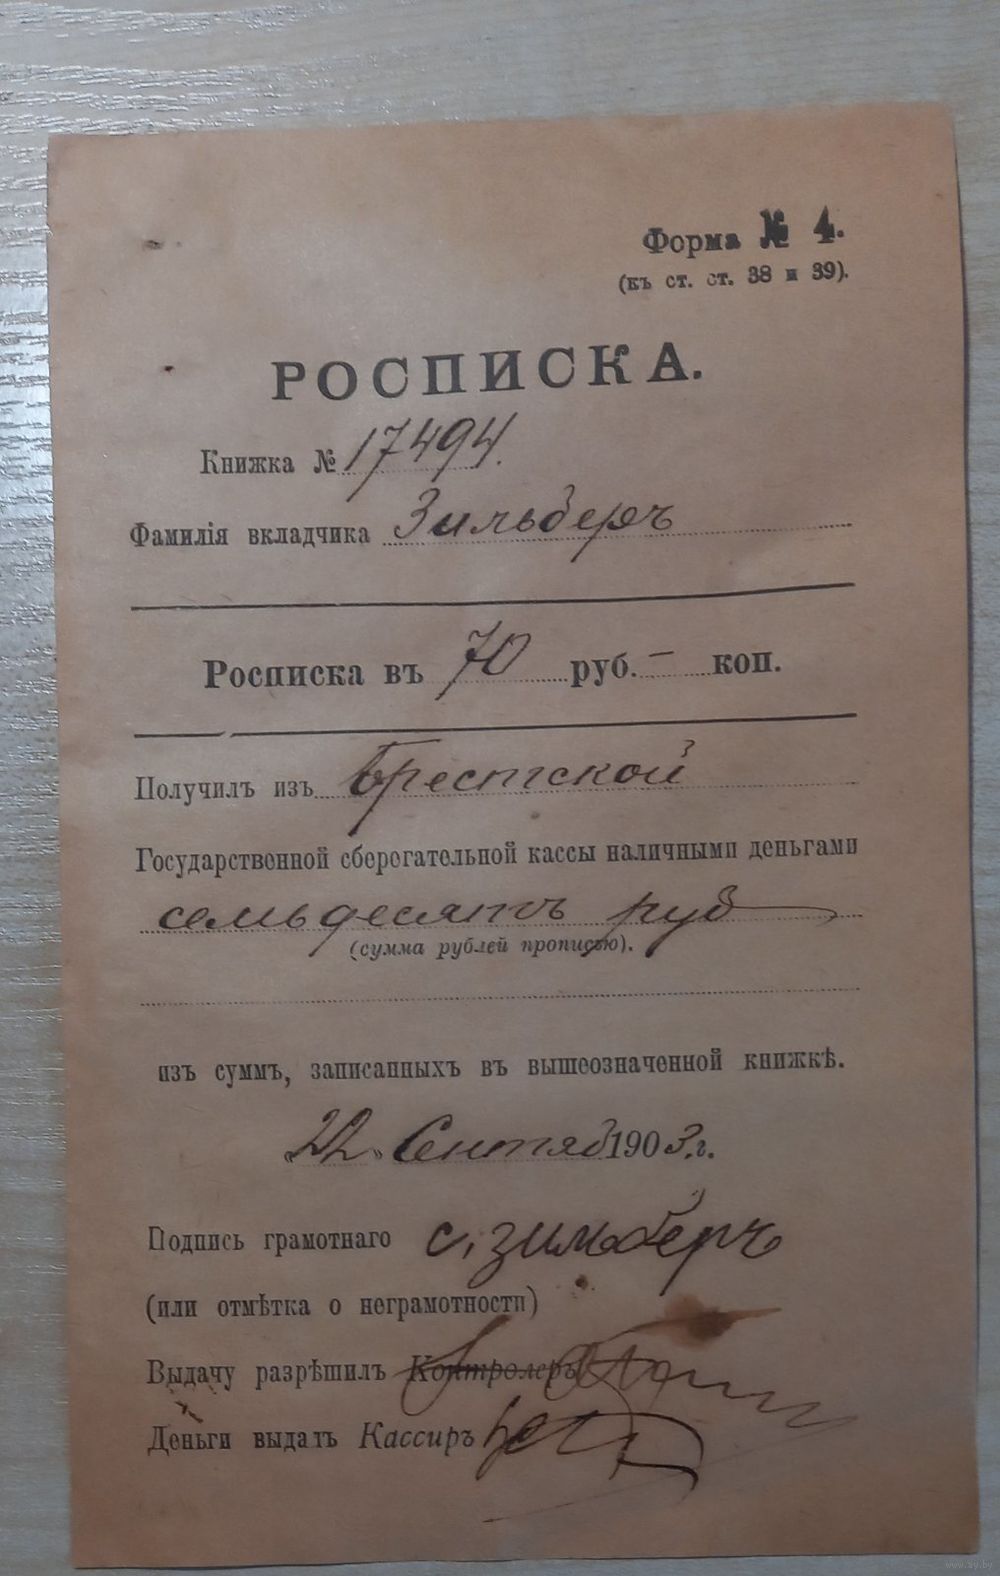 Форма № 4.
(къ ст. ст. 38 и 39).
РОСПИСКА.
Книжка № 17494.
Фамилія вкладчика Зильберъ
Росписка въ 70 руб. – коп.
Получилъ изъ Брестской
Государственной сберегательной кассы наличными деньгами
семьдесятъ руб
(сумма рублей прописью).
изъ суммъ, записанныхъ въ вышеозначенной книжкѣ.
22 Сентяб 1903 г.
Подпись грамотнаго С. Зильберъ
(или отмѣтка о неграмотности)
Выдачу разрѣшилъ Контролеръ
Деньги выдалъ Кассиръ
www.ay.by